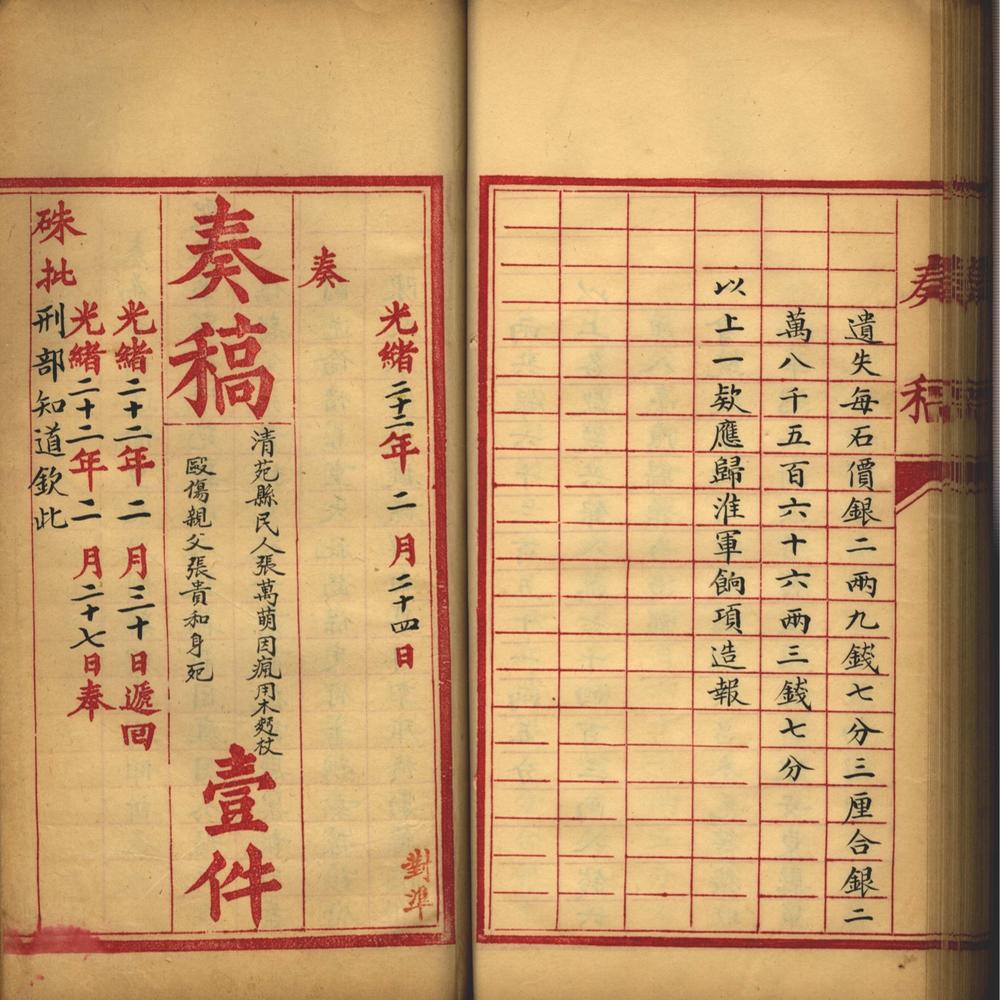 遺失每石價銀二兩九錢七分三厘合銀二
萬八千五百六十六兩三錢七分
以上一欵應歸淮軍餉項造報
奏稿
光緒二十二年二月二十四日
對準
奏
奏稿
清苑縣民人張萬萌因瘋用木杴杖
毆傷親父張貴和身死
壹件
光緒二十二年二月三十日遞回
光緒二十二年二月二十七日奉
硃批刑部知道欽此